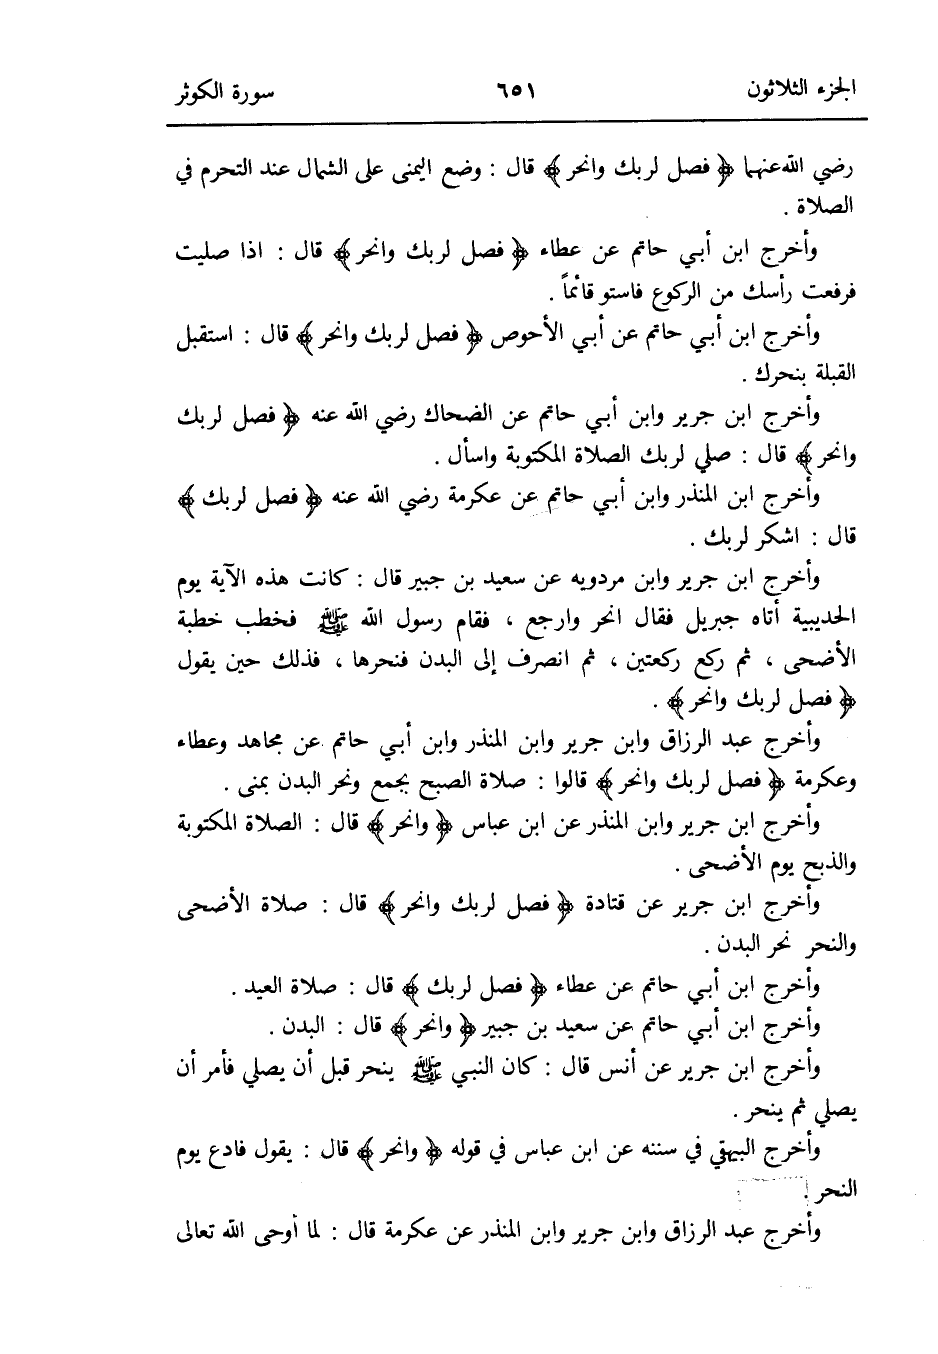 الجزء الثلاثون ٦٥١ سورة الكوثر
رضي الله عنهما ﴿ فصل لربك وانحر ﴾ قال : وضع اليمنى على الشمال عند التحرم في
الصلاة .
وأخرج ابن أبي حاتم عن عطاء ﴿ فصل لربك وانحر ﴾ قال : اذا صليت
فرفعت رأسك من الركوع فاستو قائماً .
وأخرج ابن أبي حاتم عن أبي الأحوص ﴿ فصل لربك وانحر ﴾ قال : استقبل
القبلة بنحرك .
وأخرج ابن جرير وابن أبي حاتم عن الضحاك رضي الله عنه ﴿ فصل لربك
وانحر ﴾ قال : صلي لربك الصلاة المكتوبة واسأل .
وأخرج ابن المنذر وابن أبي حاتم عن عكرمة رضي الله عنه ﴿ فصل لربك ﴾
قال : اشكر لربك .
وأخرج ابن جرير وابن مردويه عن سعيد بن جبير قال : كانت هذه الآية يوم
الحديبية أتاه جبريل فقال انحر وارجع ، فقام رسول الله ﷺ فخطب خطبة
الأضحى ، ثم ركع ركعتين ، ثم انصرف إلى البدن فنحرها ، فذلك حين يقول
﴿ فصل لربك وانحر ﴾ .
وأخرج عبد الرزاق وابن جرير وابن المنذر وابن أبي حاتم عن مجاهد وعطاء
وعكرمة ﴿ فصل لربك وانحر ﴾ قالوا : صلاة الصبح بجمع ونحر البدن بمنى .
وأخرج ابن جرير وابن المنذر عن ابن عباس ﴿ وانحر ﴾ قال : الصلاة المكتوبة
والذبح يوم الأضحى .
وأخرج ابن جرير عن قتادة ﴿ فصل لربك وانحر ﴾ قال : صلاة الأضحى
والنحر نحر البدن .
وأخرج ابن أبي حاتم عن عطاء ﴿ فصل لربك ﴾ قال : صلاة العيد .
وأخرج ابن أبي حاتم عن سعيد بن جبير ﴿ وانحر ﴾ قال : البدن .
وأخرج ابن جرير عن أنس قال : كان النبي ﷺ ينحر قبل أن يصلي فأمر أن
يصلي ثم ينحر .
وأخرج البيهقي في سننه عن ابن عباس في قوله ﴿ وانحر ﴾ قال : يقول فادع يوم
النحر .
وأخرج عبد الرزاق وابن جرير وابن المنذر عن عكرمة قال : لما أوحى الله تعالى